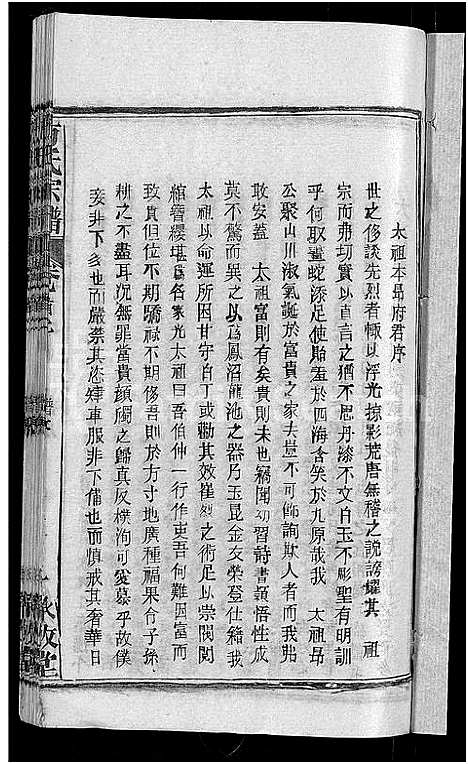 太祖本昂府君序
世之侈談先烈者輒以浮光掠影荒唐無稽之說謗耀其　祖
宗而弗切實以直言之猶不思丹漆不文白玉不彫聖有明訓
乎何取畫蛇添足使貽羞於四海含笑於九原哉我　太祖昂
公聚山川淑氣誕於富貴之家夫豈不可飾詞欺人者而我弗
敢安蓋　太祖富有矣貴則未也竊聞幼習詩書頴悟性成
莫不驚而異之以爲鳳沼龍池之器乃玉昆金友榮登仕籍我
太祖以命運所囿甘守白丁或勸其效崔烈之術足以崇閥閱
綰簪纓堪邑名家光太祖曰吾伯仲一行作吏吾何難因富而
致貴但位不期驕祿不期侈吾則於方寸地廣種福果令子孫
耕之不盡耳況無罪當貴顔斶之歸眞反樸洵可愛慕乎故僕
妾非下多也而嚴禁其恣肆車服非下備也而慎戒其奢華日
氏宗譜
敘堂